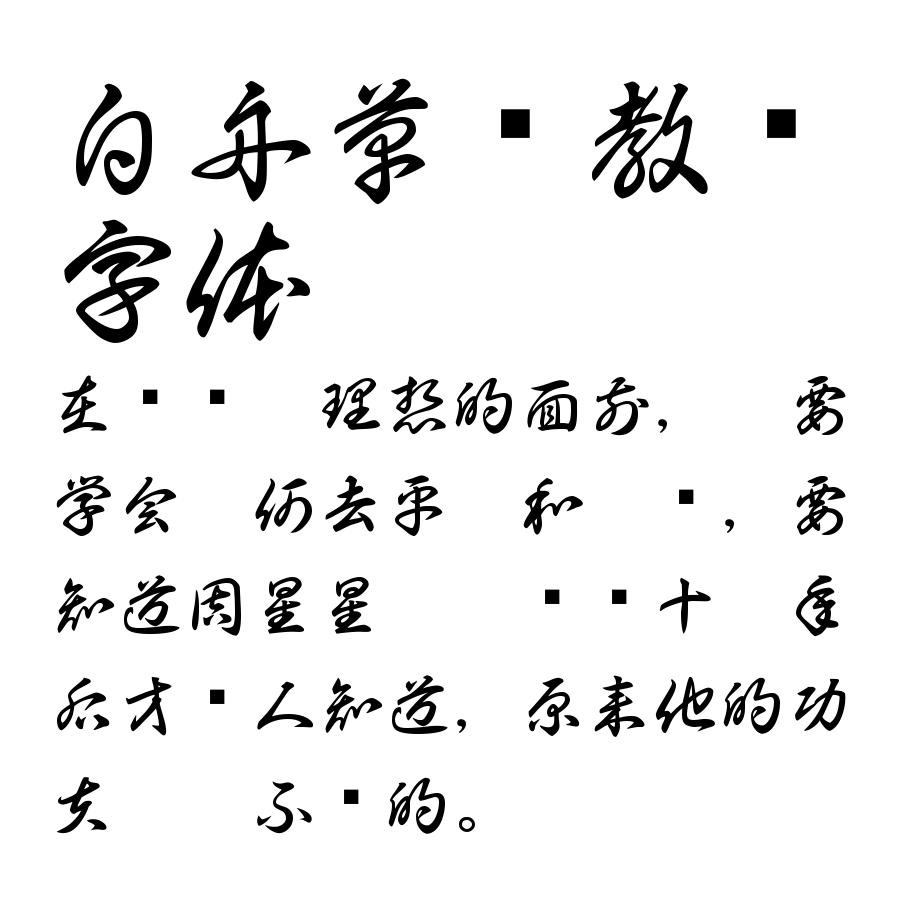 白舟草 教
字体
在 理想的面前， 要
学会 何去平 和 ，要
知道周星星 十 年
后才 人知道，原来他的功
夫 不 的。